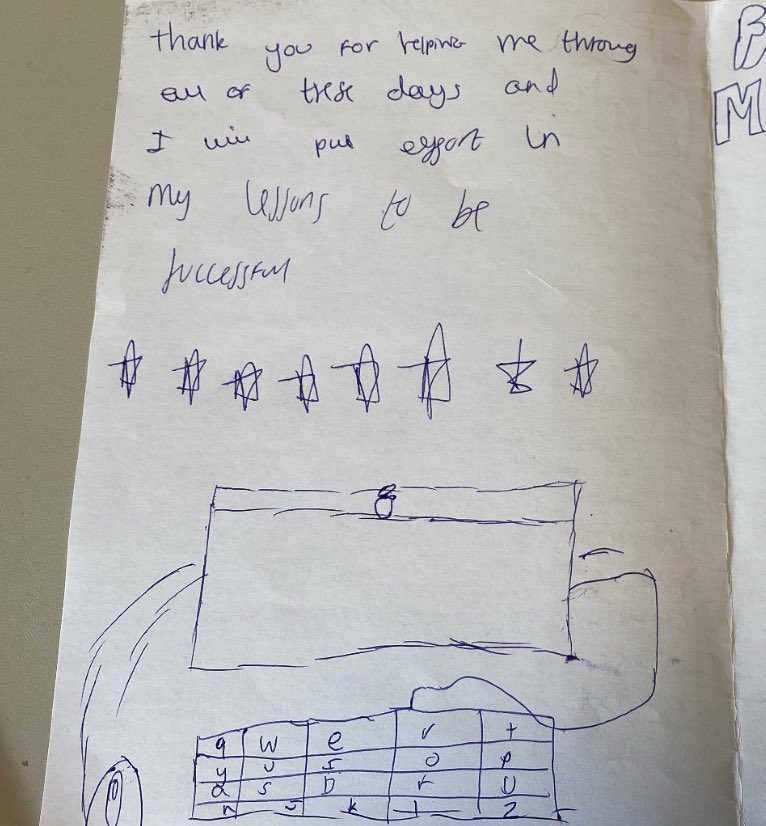 thank you for helping me throug
all of these days and
I will put effort in
My lessons to be
successful
B
M
q w e r t
y u i o p
a s D f U
n J k l z